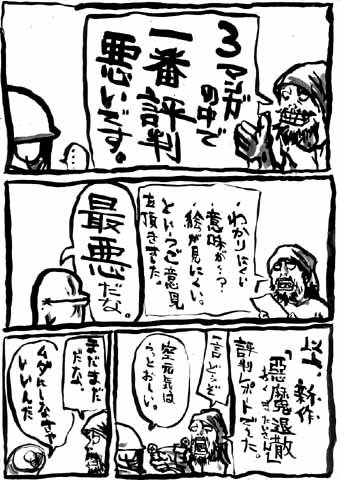 3マンガ
の中で
一番評判
悪いです。
・わかりにくい
・意味が…？
・絵が見にくい。
というご意見
を頂きました。
最悪だな。
以上、新作
「悪魔退散」
評判レポートでした。
一言どうぞ
空元気は
うっとおしい。
まだまだ
だな。
ムダにしなきゃ
いいんだ